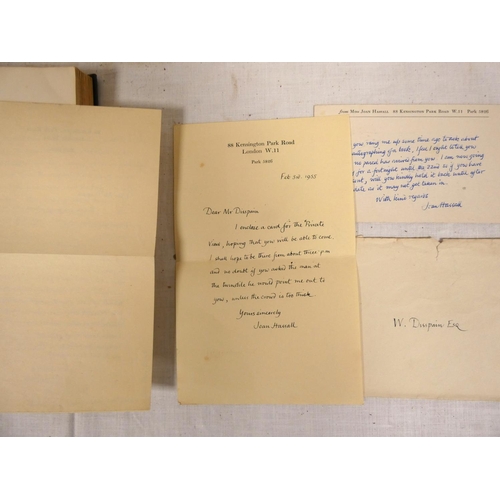 88 Kensington Park Road
London W.11
Park 5926
Feb 5th. 1955
Dear Mr Durpain
I enclose a card for the Private
View, hoping that you will be able to come.
I shall hope to be there from about three p.m
and no doubt if you asked the man at
the turnstile he would point me out to
you, unless the crowd is too thick.
Yours sincerely
Joan Hassall
from Miss Joan Hassall 88 Kensington Park Road W.11 Park 5926
you rang me up some time ago to ask about
autographing of a book, I feel I ought to let you
no parcel has arrived from you. I am now going
for a fortnight until the 22nd so if you have
sent, will you kindly hold it back until after
date as it may not get taken in.
With kind regards
Joan Hassall
W. Durpain Esq